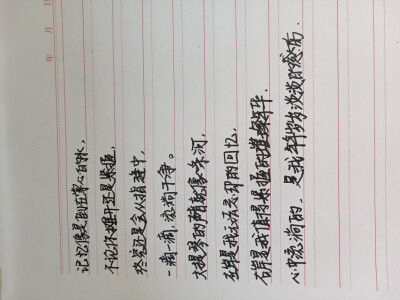 年 月 日
记忆像是倒在掌心的水,
不论你摊开还是紧握,
终究还是会从指缝中,
一滴一滴,流淌干净。
大提琴的声音就像一条河,
左岸是我无法忘却的回忆,
右岸是我值得紧握的璀璨年华,
流淌的,是我年年岁岁淡淡的感伤.